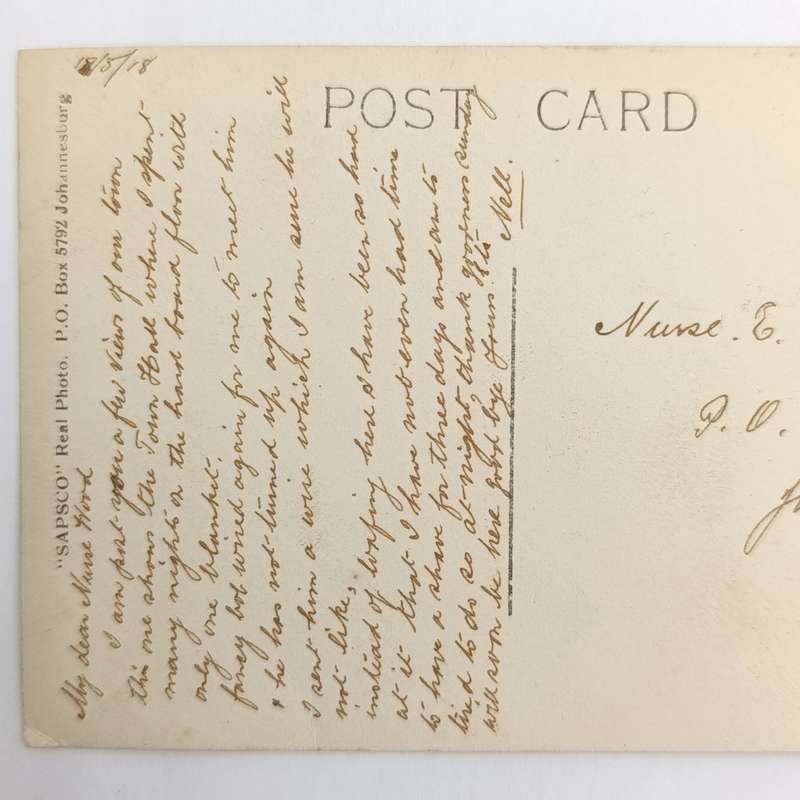 POST CARD
"SAPSCO" Real Photo. P.O. Box 5792 Johannesburg
/5/18
My dear Nurse Wood
I am post you a few views of our town
this one shows the Town Hall where I spent
many nights on the hard board floor with
only one blanket.
fancy bob wired again for me to meet him
& he has not turned up again
I sent him a wire which I am sure he will
not like,
instead of loafing here I have been so hard
at it that I have not even had time
to have a shave for three days and am to
tired to do so at night, thank goodness Sunday
will soon be here good bye Yours
Nell.
Nurse. E.
P. O.